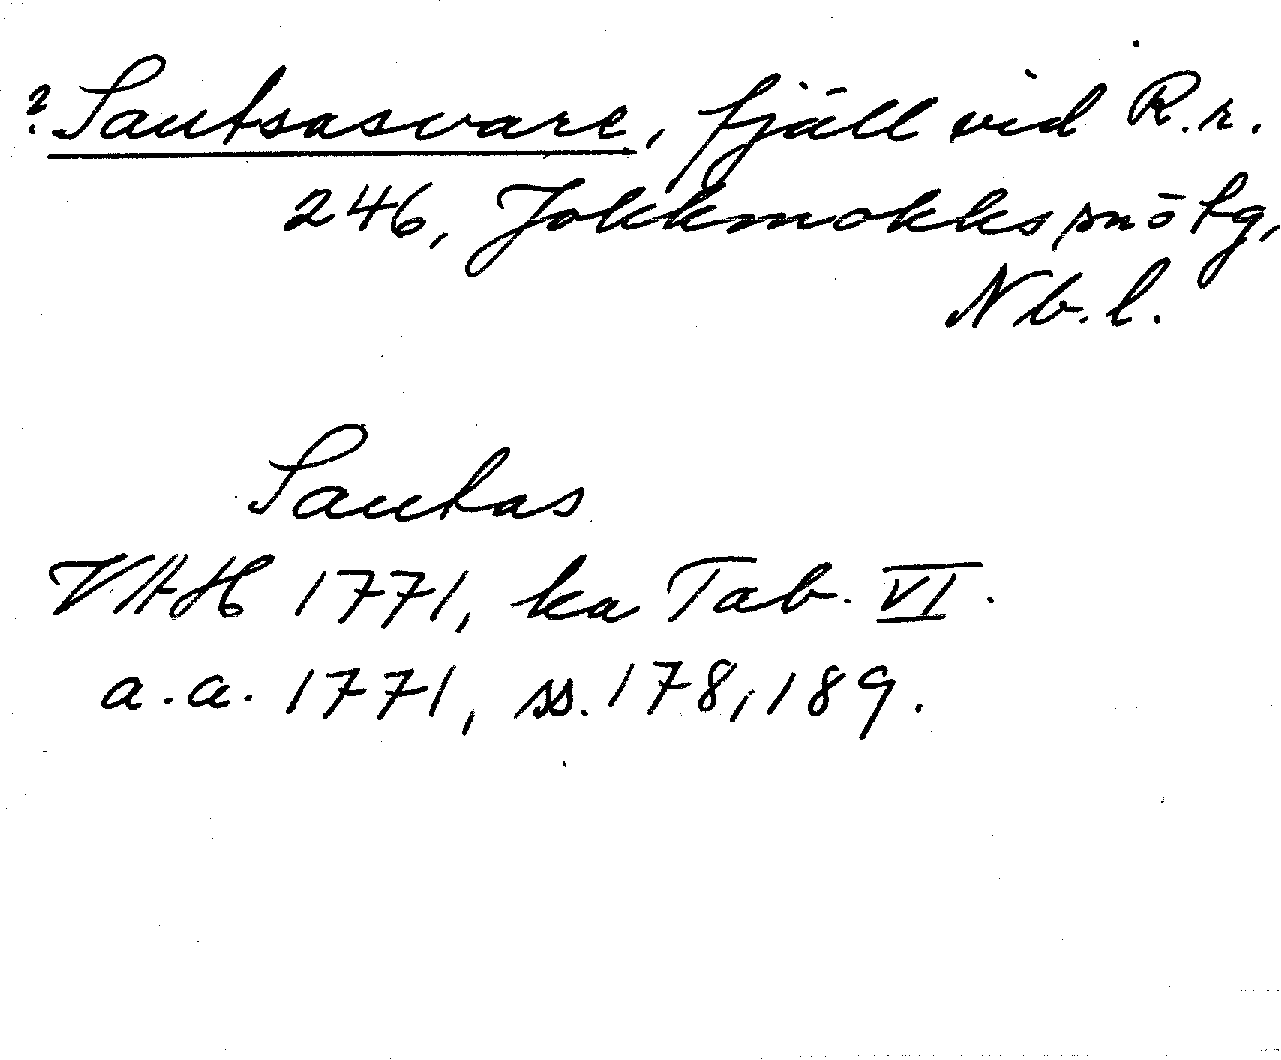 ? Sautsasvare, fjäll vid R.r.
246, Jokkmokks
Nb.l.
Sautas
VHAH 1771, ka Tab. VI.
a.a. 1771, ss. 178, 189.